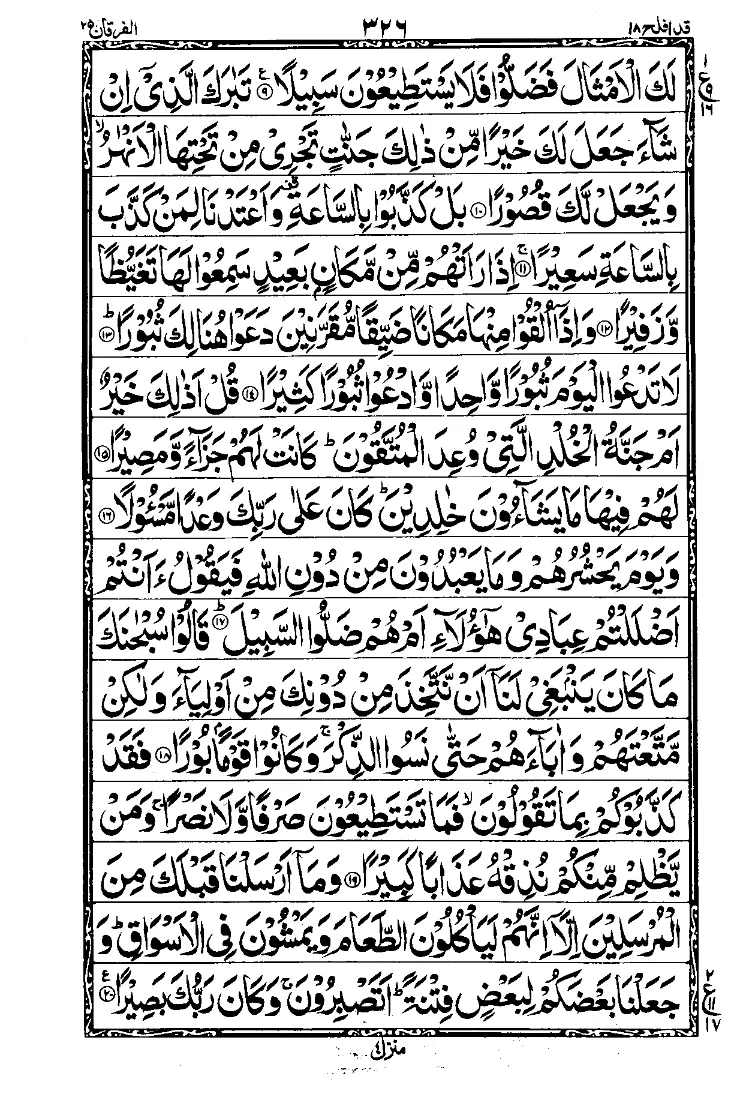 قد افلح ١٨ ٣٢٦ الفرقان ٢٥
لَكَ الْاَمْثَالَ فَضَلُّوْا فَلَا يَسْتَطِيْعُوْنَ سَبِيْلًا ﴿٩﴾ ع تَبٰرَكَ الَّذِيْۤ اِنْ
شَآءَ جَعَلَ لَكَ خَيْرًا مِّنْ ذٰلِكَ جَنّٰتٍ تَجْرِيْ مِنْ تَحْتِهَا الْاَنْهٰرُ ۙ
وَيَجْعَلْ لَّكَ قُصُوْرًا ﴿١٠﴾ بَلْ كَذَّبُوْا بِالسَّاعَةِ ۫ وَاَعْتَدْنَا لِمَنْ كَذَّبَ
بِالسَّاعَةِ سَعِيْرًا ﴿١١﴾ ۚ اِذَا رَاَتْهُمْ مِّنْ مَّكَانٍۭ بَعِيْدٍ سَمِعُوْا لَهَا تَغَيُّظًا
وَّزَفِيْرًا ﴿١٢﴾ وَاِذَاۤ اُلْقُوْا مِنْهَا مَكَانًا ضَيِّقًا مُّقَرَّنِيْنَ دَعَوْا هُنَالِكَ ثُبُوْرًا ﴿١٣﴾ ؕ
لَا تَدْعُوا الْيَوْمَ ثُبُوْرًا وَّاحِدًا وَّادْعُوْا ثُبُوْرًا كَثِيْرًا ﴿١٤﴾ قُلْ اَذٰلِكَ خَيْرٌ
اَمْ جَنَّةُ الْخُلْدِ الَّتِيْ وُعِدَ الْمُتَّقُوْنَ ؕ كَانَتْ لَهُمْ جَزَآءً وَّمَصِيْرًا ﴿١٥﴾
لَهُمْ فِيْهَا مَا يَشَآءُوْنَ خٰلِدِيْنَ ؕ كَانَ عَلٰى رَبِّكَ وَعْدًا مَّسْـُٔوْلًا ﴿١٦﴾
وَيَوْمَ يَحْشُرُهُمْ وَمَا يَعْبُدُوْنَ مِنْ دُوْنِ اللّٰهِ فَيَقُوْلُ ءَاَنْتُمْ
اَضْلَلْتُمْ عِبَادِيْ هٰٓؤُلَآءِ اَمْ هُمْ ضَلُّوا السَّبِيْلَ ﴿١٧﴾ ؕ قَالُوْا سُبْحٰنَكَ
مَا كَانَ يَنْۢبَغِيْ لَنَاۤ اَنْ نَّتَّخِذَ مِنْ دُوْنِكَ مِنْ اَوْلِيَآءَ وَلٰكِنْ
مَّتَّعْتَهُمْ وَاٰبَآءَهُمْ حَتّٰى نَسُوا الذِّكْرَ ۚ وَكَانُوْا قَوْمًۢا بُوْرًا ﴿١٨﴾ فَقَدْ
كَذَّبُوْكُمْ بِمَا تَقُوْلُوْنَ ۙ فَمَا تَسْتَطِيْعُوْنَ صَرْفًا وَّلَا نَصْرًا ۚ وَمَنْ
يَّظْلِمْ مِّنْكُمْ نُذِقْهُ عَذَابًا كَبِيْرًا ﴿١٩﴾ وَمَاۤ اَرْسَلْنَا قَبْلَكَ مِنَ
الْمُرْسَلِيْنَ اِلَّاۤ اِنَّهُمْ لَيَاْكُلُوْنَ الطَّعَامَ وَيَمْشُوْنَ فِي الْاَسْوَاقِ ؕ وَ
جَعَلْنَا بَعْضَكُمْ لِبَعْضٍ فِتْنَةً ؕ اَتَصْبِرُوْنَ ۚ وَكَانَ رَبُّكَ بَصِيْرًا ﴿٢٠﴾ ع
١ ع ٩ ١٦
٢ ع ١١ ١٧
منزل ٤